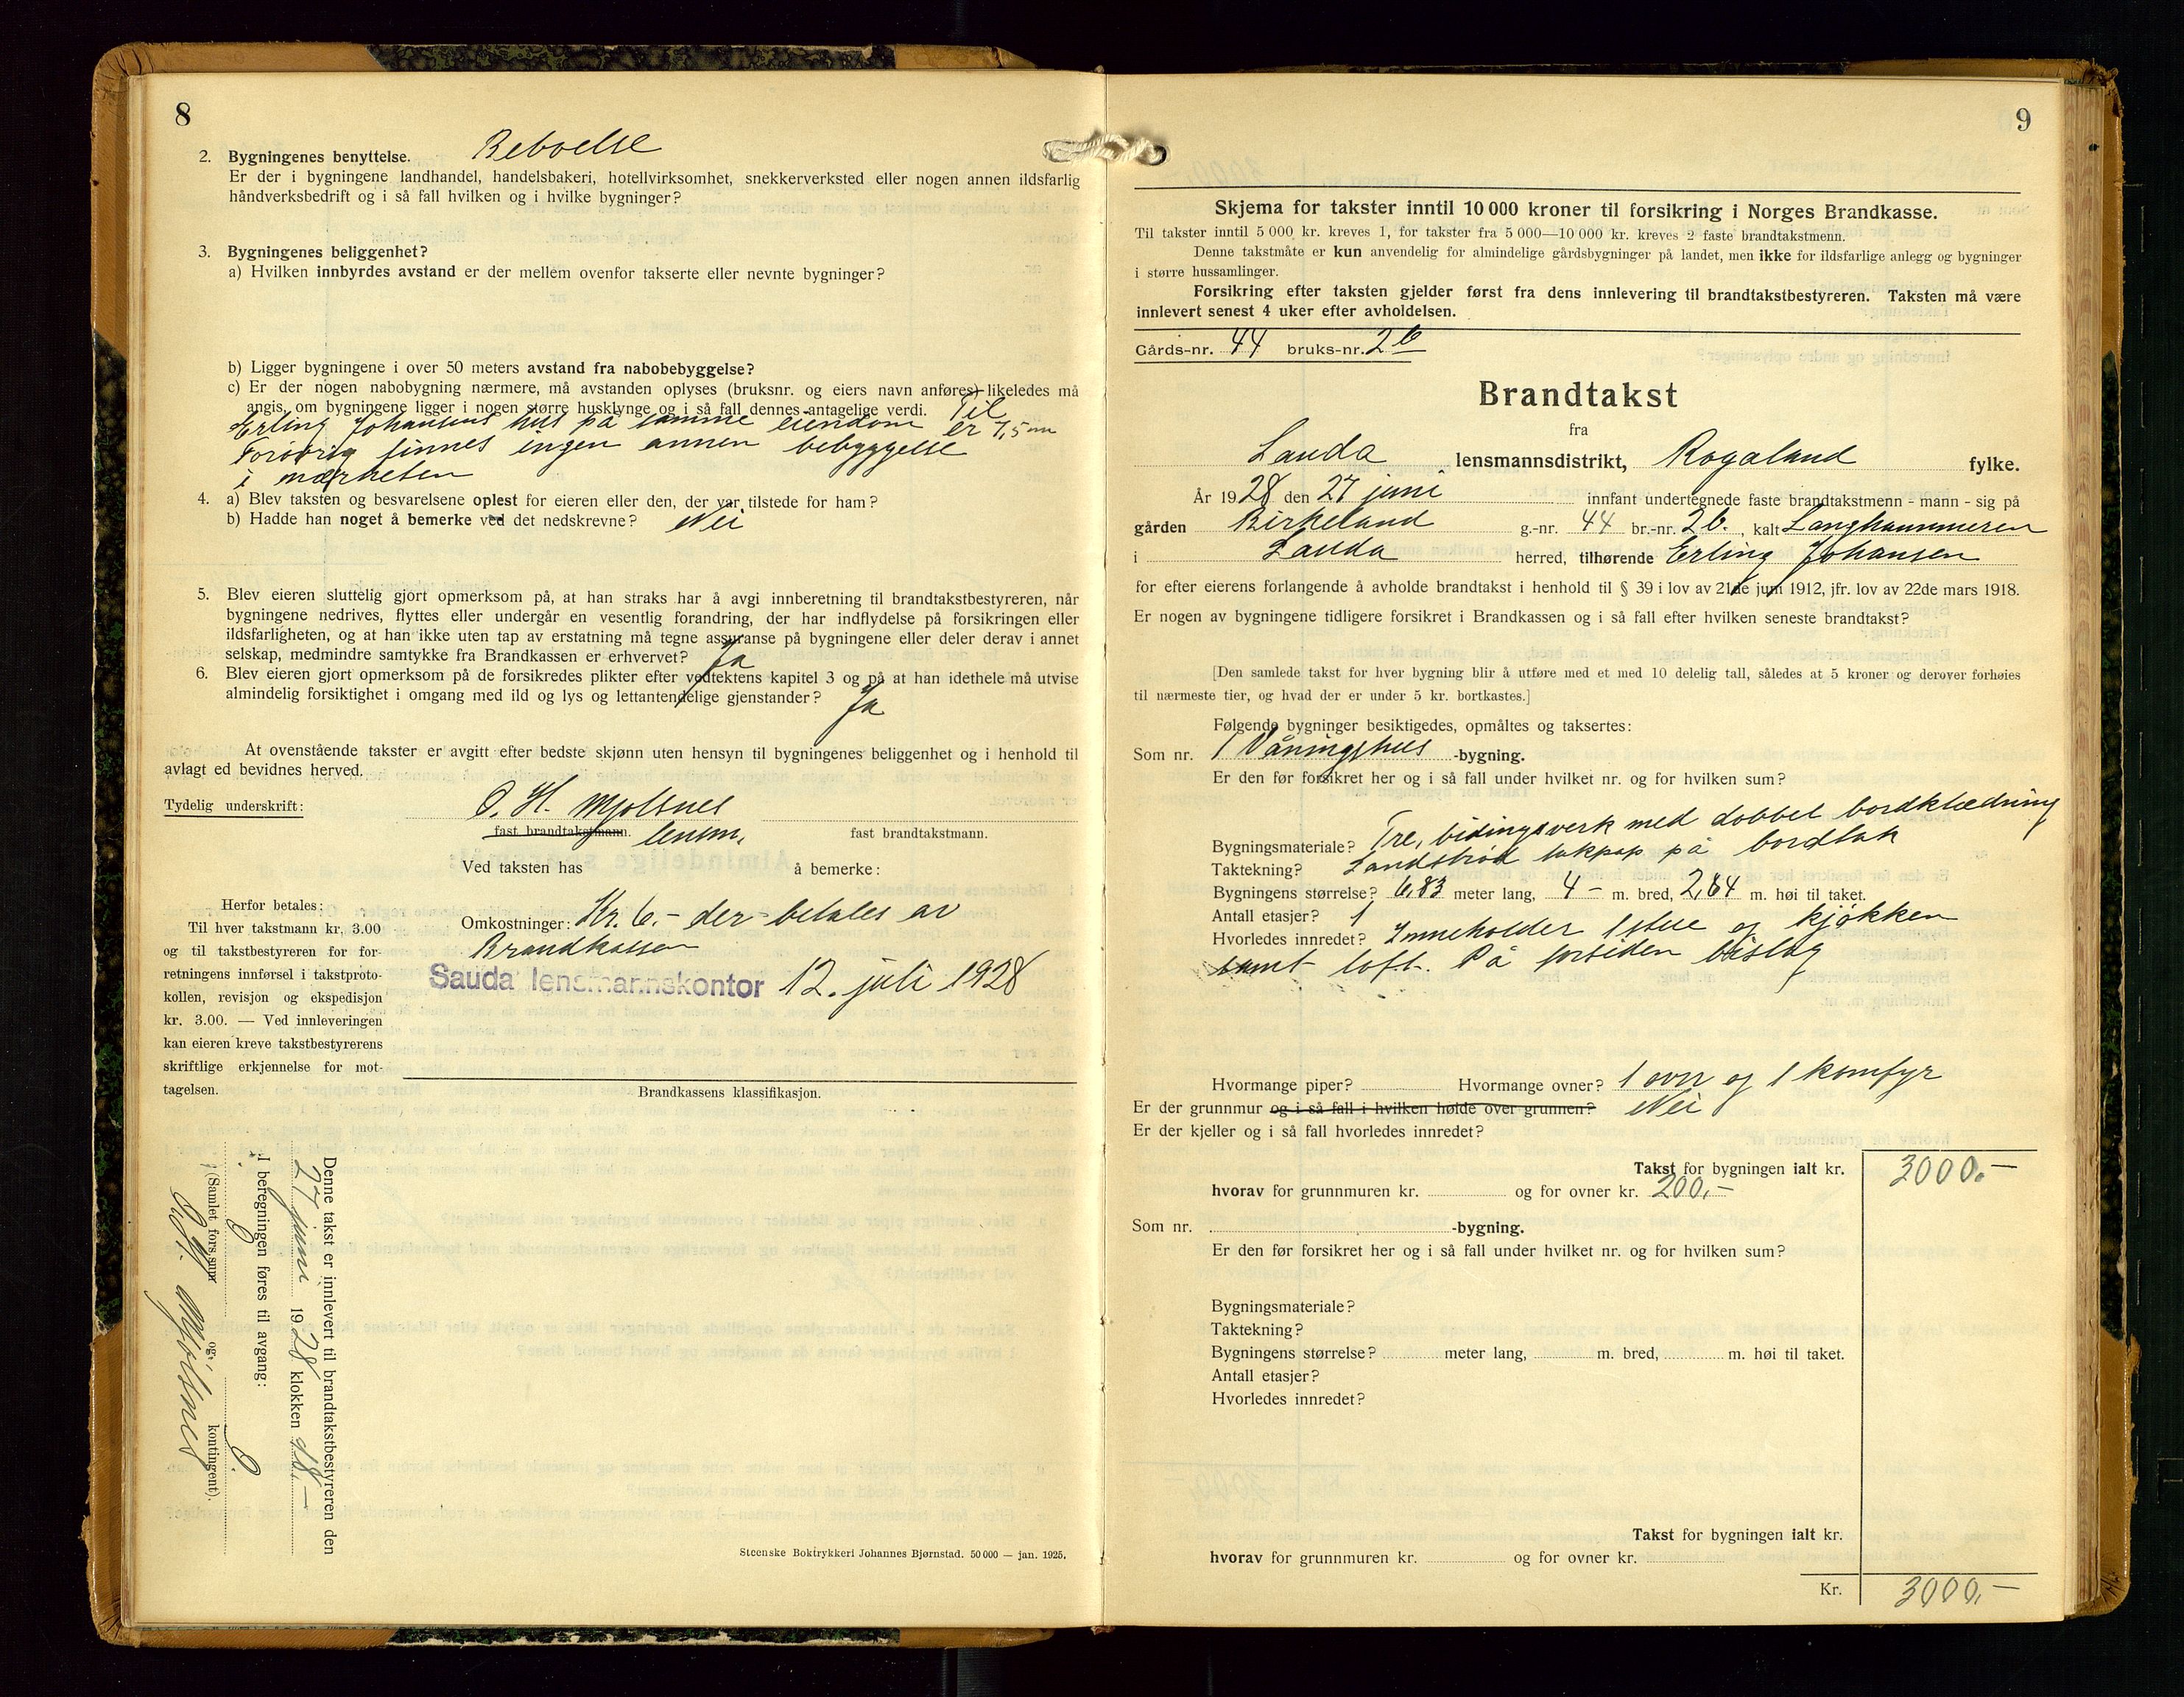 8
2. Bygningenes benyttelse. Beboelse
Er der i bygningene landhandel, handelsbakeri, hotellvirksomhet, snekkerverksted eller nogen annen ildsfarlig
håndverksbedrift og i så fall hvilken og i hvilke bygninger?
3. Bygningenes beliggenhet?
a) Hvilken innbyrdes avstand er der mellem ovenfor takserte eller nevnte bygninger?
b) Ligger bygningene i over 50 meters avstand fra nabobebyggelse?
c) Er der nogen nabobygning nærmere, må avstanden oplyses (bruksnr. og eiers navn anføres) likeledes må
angis, om bygningene ligger i nogen større husklynge og i så fall dennes antagelige verdi. Til
Erling Johansens hus på samme eiendom er 7,5 m
Forøvrig finnes ingen annen bebyggelse
i nærheten
4. a) Blev taksten og besvarelsene oplest for eieren eller den, der var tilstede for ham?
b) Hadde han noget å bemerke ved det nedskrevne? Nei
5. Blev eieren sluttelig gjort opmerksom på, at han straks har å avgi innberetning til brandtakstbestyreren, når
bygningene nedrives, flyttes eller undergår en vesentlig forandring, der har indflydelse på forsikringen eller
ildsfarligheten, og at han ikke uten tap av erstatning må tegne assuranse på bygningene eller deler derav i annet
selskap, medmindre samtykke fra Brandkassen er erhvervet? Ja
6. Blev eieren gjort opmerksom på de forsikredes plikter efter vedtektens kapitel 3 og på at han idethele må utvise
almindelig forsiktighet i omgang med ild og lys og lettantendelige gjenstander? Ja
At ovenstående takster er avgitt efter bedste skjønn uten hensyn til bygningenes beliggenhet og i henhold til
avlagt ed bevidnes herved.
Tydelig underskrift: O. H. Mjølsnes
fast brandtakstmann. lensm. fast brandtakstmann.
Ved taksten has å bemerke:
Herfor betales:
Til hver takstmann kr. 3.00
og til takstbestyreren for for-
retningens innførsel i takstproto-
kollen, revisjon og ekspedisjon
kr. 3.00. — Ved innleveringen
kan eieren kreve takstbestyrerens
skriftlige erkjennelse for mot-
tagelsen.
Omkostninger: Kr. 6.- der betales av
Brandkassen
Sauda lensmannskontor 12. juli 1928
Brandkassens klassifikasjon.
Denne takst er innlevert til brandtakstbestyreren den
27 juni 1928 klokken 18.-
I beregningen føres til avgang:
(Samlet fors.sum og kontingent).
Mjølsnes
Steenske Boktrykkeri Johannes Bjørnstad. 50 000 — jan. 1925.
9
Skjema for takster inntil 10 000 kroner til forsikring i Norges Brandkasse.
Til takster inntil 5 000 kr. kreves 1, for takster fra 5 000—10 000 kr. kreves 2 faste brandtakstmenn.
Denne takstmåte er kun anvendelig for almindelige gårdsbygninger på landet, men ikke for ildsfarlige anlegg og bygninger
i større hussamlinger.
Forsikring efter taksten gjelder først fra dens innlevering til brandtakstbestyreren. Taksten må være
innlevert senest 4 uker efter avholdelsen.
Gårds-nr. 44 bruks-nr. 2b
Brandtakst
fra
Sauda lensmannsdistrikt, Rogaland fylke.
År 1928 den 27 juni innfant undertegnede faste brandtakstmenn - mann - sig på
gården Birkeland g.-nr. 44 br.-nr. 2b., kalt Langhammeren
i Sauda herred, tilhørende Erling Johansen
for efter eierens forlangende å avholde brandtakst i henhold til § 39 i lov av 21de juni 1912, jfr. lov av 22de mars 1918.
Er nogen av bygningene tidligere forsikret i Brandkassen og i så fall efter hvilken seneste brandtakst?
[Den samlede takst for hver bygning blir å utføre med et med 10 delelig tall, således at 5 kroner og derover forhøies
til nærmeste tier, og hvad der er under 5 kr. bortkastes.]
Følgende bygninger besiktigedes, opmåltes og taksertes:
Som nr. 1 Våningshus -bygning.
Er den før forsikret her og i så fall under hvilket nr. og for hvilken sum?
Bygningsmateriale? Tre, bidingsverk med dobbel bordklædning
Taktekning? Sandstrød takpap på bordtak
Bygningens størrelse? 6,83 meter lang, 4 - m. bred, 2,64 m. høi til taket.
Antall etasjer? 1
Hvorledes innredet? Inneholder 1 stue og kjøkken
samt loft. På forsiden bislag
Hvormange piper? Hvormange ovner? 1 ovn og 1 komfyr
Er der grunnmur og i så fall i hvilken høide over grunnen? Nei
Er der kjeller og i så fall hvorledes innredet?
Takst for bygningen ialt kr. 3000.-
hvorav for grunnmuren kr. og for ovner kr. 200,-
Som nr. -bygning.
Er den før forsikret her og i så fall under hvilket nr. og for hvilken sum?
Bygningsmateriale?
Taktekning?
Bygningens størrelse? meter lang, m. bred, m. høi til taket.
Antall etasjer?
Hvorledes innredet?
Takst for bygningen ialt kr.
hvorav for grunnmuren kr. og for ovner kr.
Kr. 3000,-